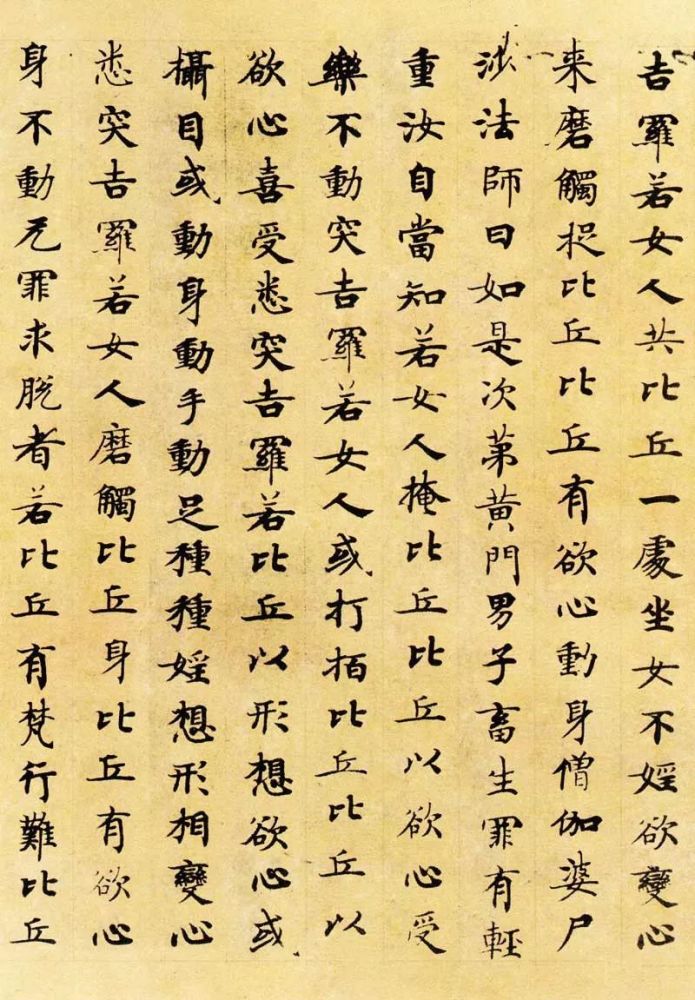 吉羅若女人共比丘一處坐女不婬欲變心
来磨觸捉比丘比丘有欲心動身僧伽婆尸
沙法師曰如是次苐黄門男子畜生罪有輕
重汝自當知若女人掩比丘比丘以欲心受
樂不動突吉羅若女人或打拍比丘比丘以
欲心喜受悉突吉羅若比丘以形想欲心或
攝目或動身動手動足種種婬想形相變心
悉突吉羅若女人磨觸比丘身比丘有欲心
身不動无罪求脱者若比丘有梵行難比丘